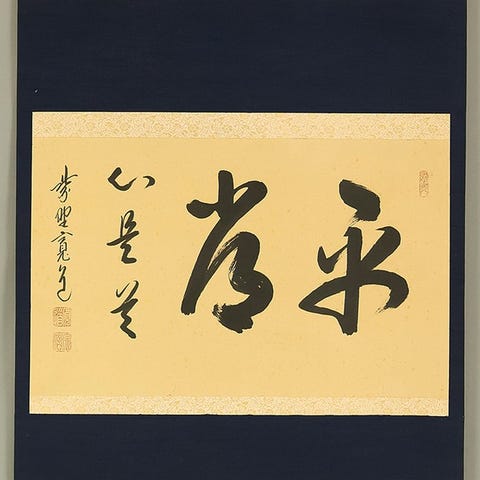 平常
心是道
紫野寛